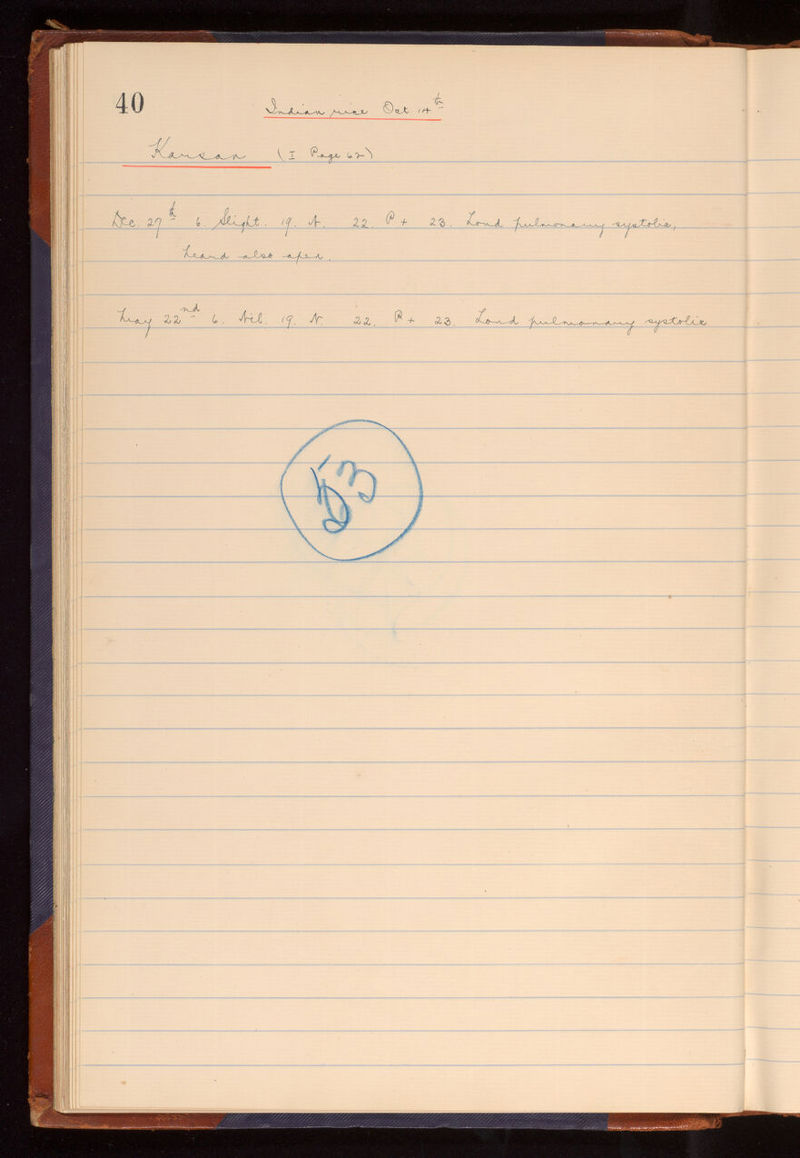 40
Indian rice Oct 14th
Karsan (I Page 62)
Dec. 27th 6. Slight. 19. N. 22. P + 23. Loud pulmonary systolic,
heard also apex.
May 22nd 6. Nil. 19. N 22. P + 23. Loud pulmonary systolic
53